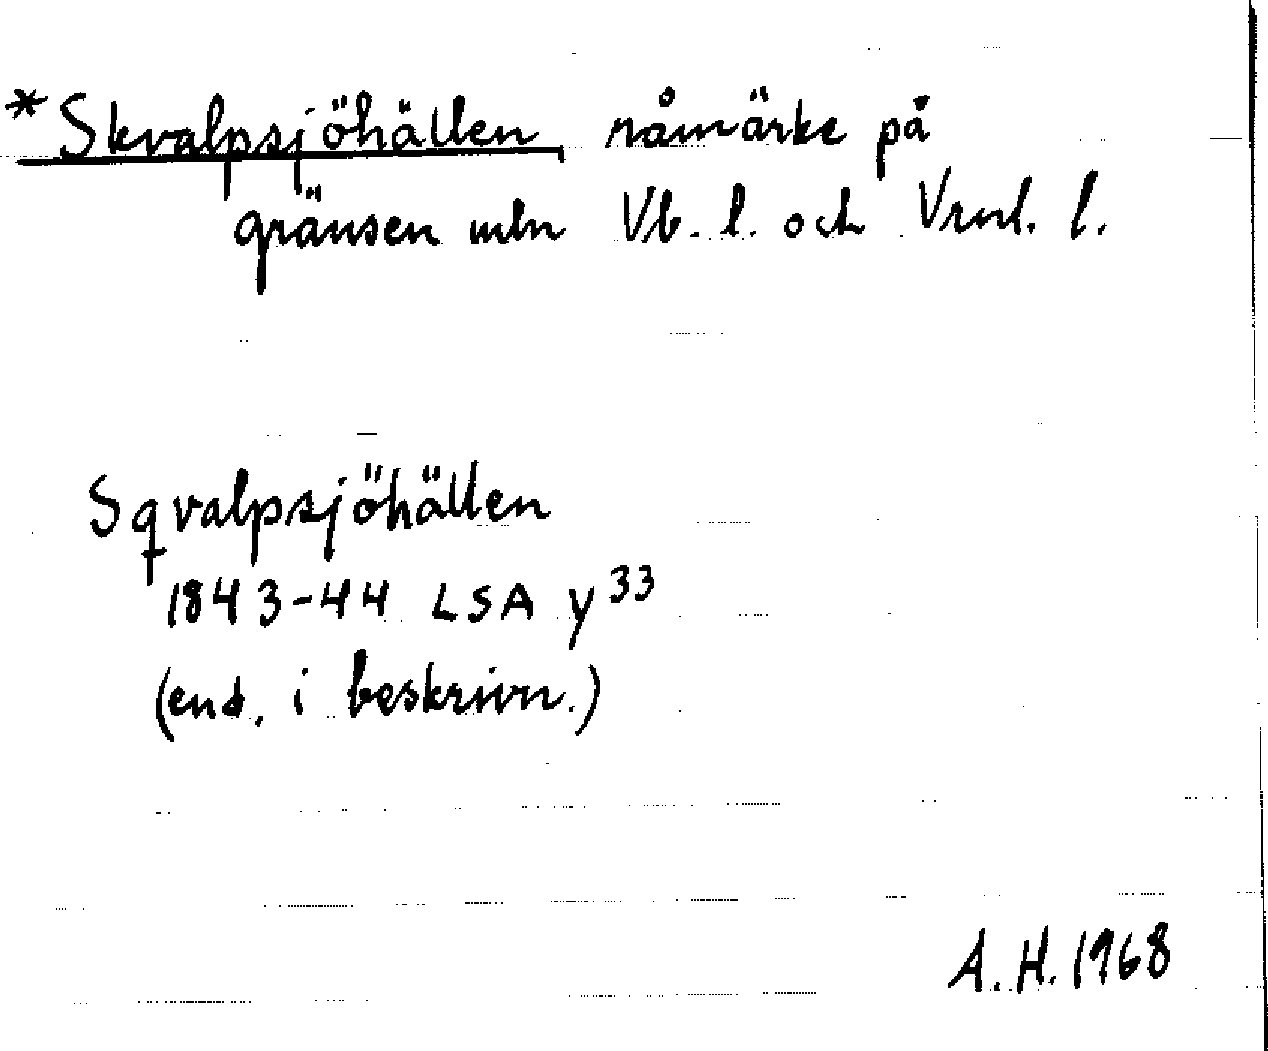 *Skvalpsjöhällen råmärke på
gränsen mln Vb. l. och Vrml. l.
Sqvalpsjöhällen
1843-44 LSA y³³
(end. i beskrivn.)
A. H. 1968